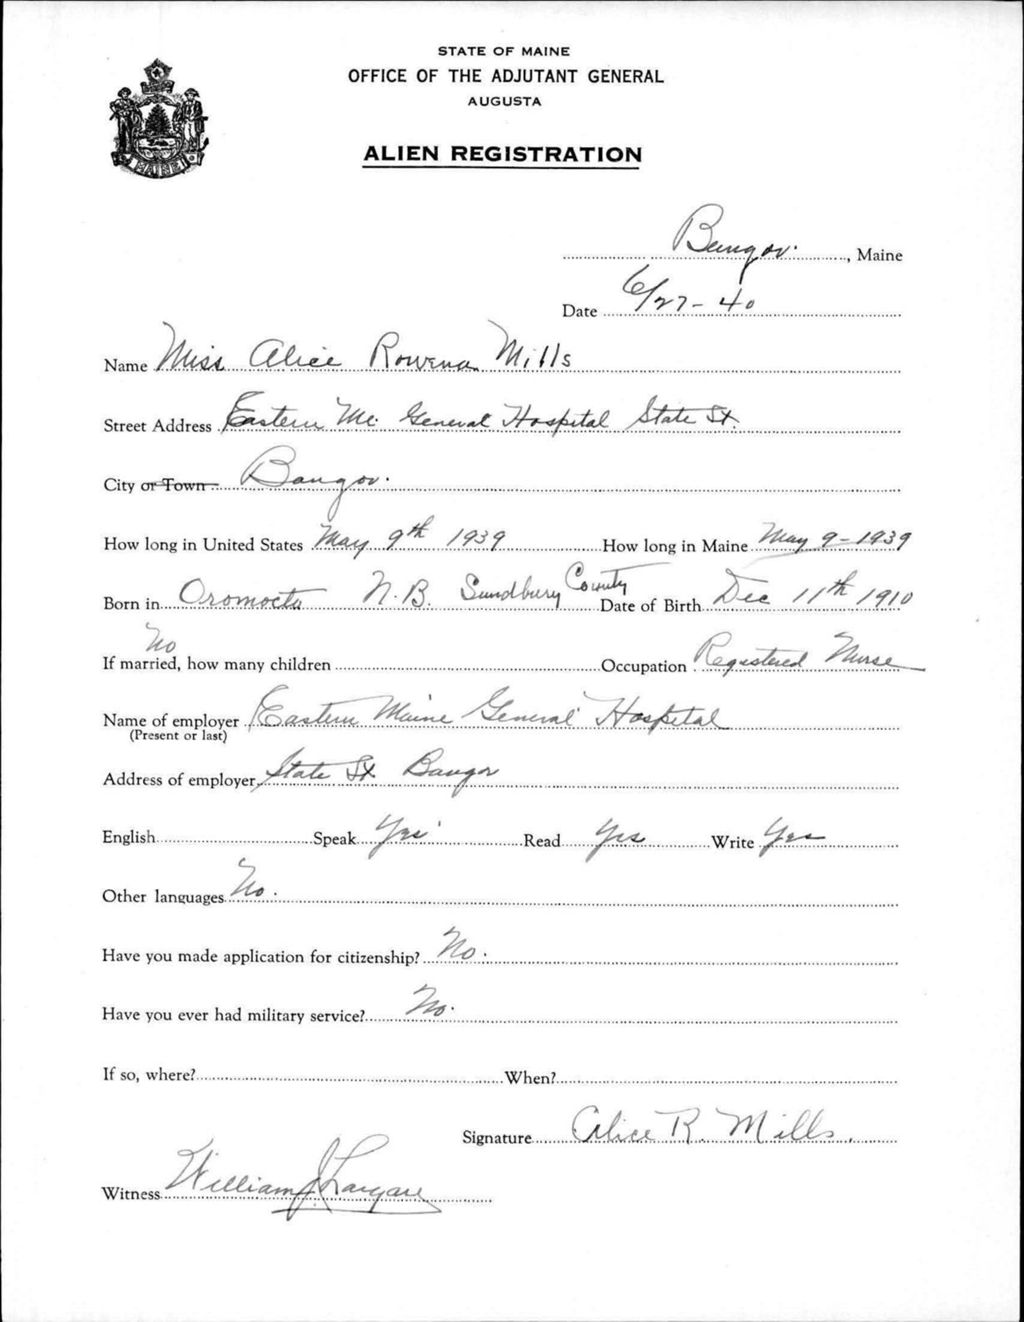 STATE OF MAINE
OFFICE OF THE ADJUTANT GENERAL
AUGUSTA
ALIEN REGISTRATION
MAINE
Bangor, Maine
Date 6/27-40
Name Miss Alice Rowena Mills
Street Address Eastern Me. General Hospital State St.
City or Town Bangor.
How long in United States May 9th 1939 How long in Maine May 9-1939
Born in Oromocto N.B. Sundbury County Date of Birth Dec 11th 1910
No
If married, how many children Occupation Registered Nurse
Name of employer Eastern Maine General Hospital
(Present or last)
Address of employer State St. Bangor
English Speak Yes Read Yes Write Yes
Other languages No.
Have you made application for citizenship? No.
Have you ever had military service? No.
If so, where? When?
Signature Alice R. Mills.
Witness William J.